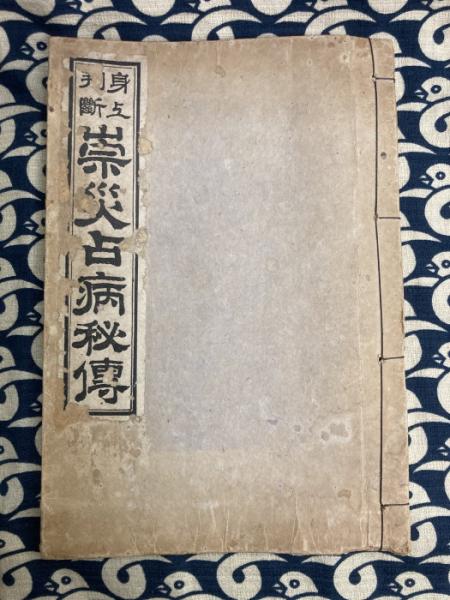 身上
判斷
崇災占病秘傳